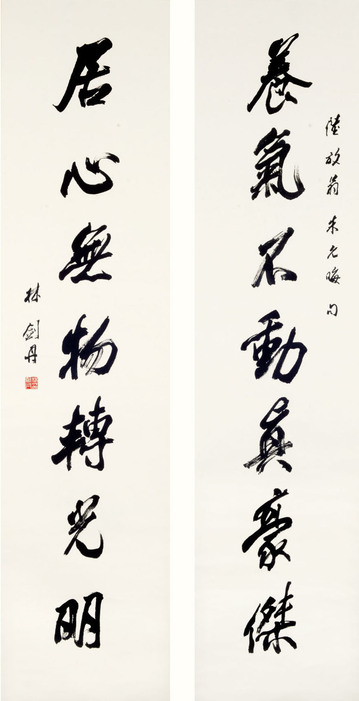 陸放翁朱元晦句
養氣不動真豪傑
居心無物轉光明
林劍丹